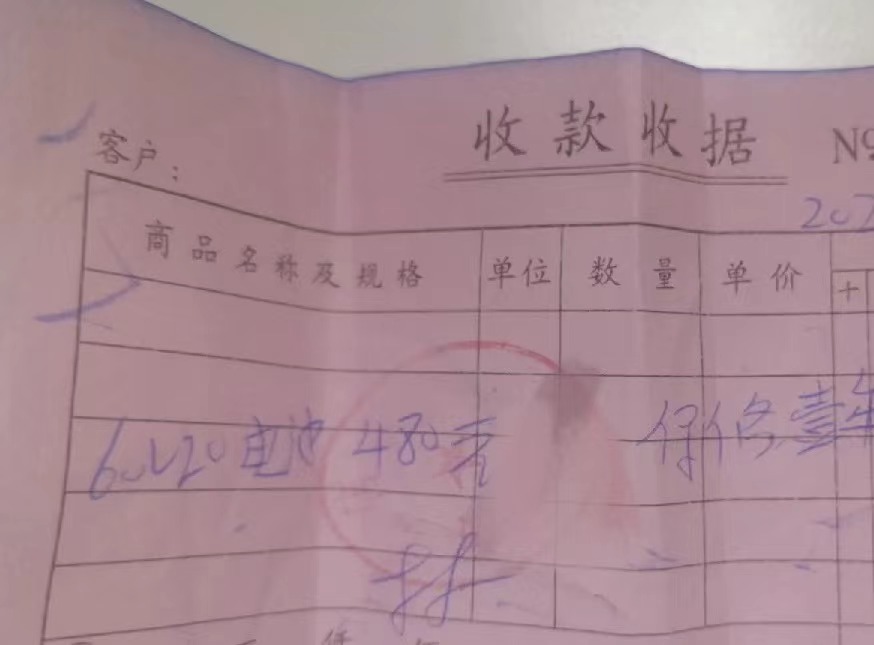 收款收据 №
客户：
207
商品名称及规格 单位 数量 单价 十
60V20电池 480元 保修壹年